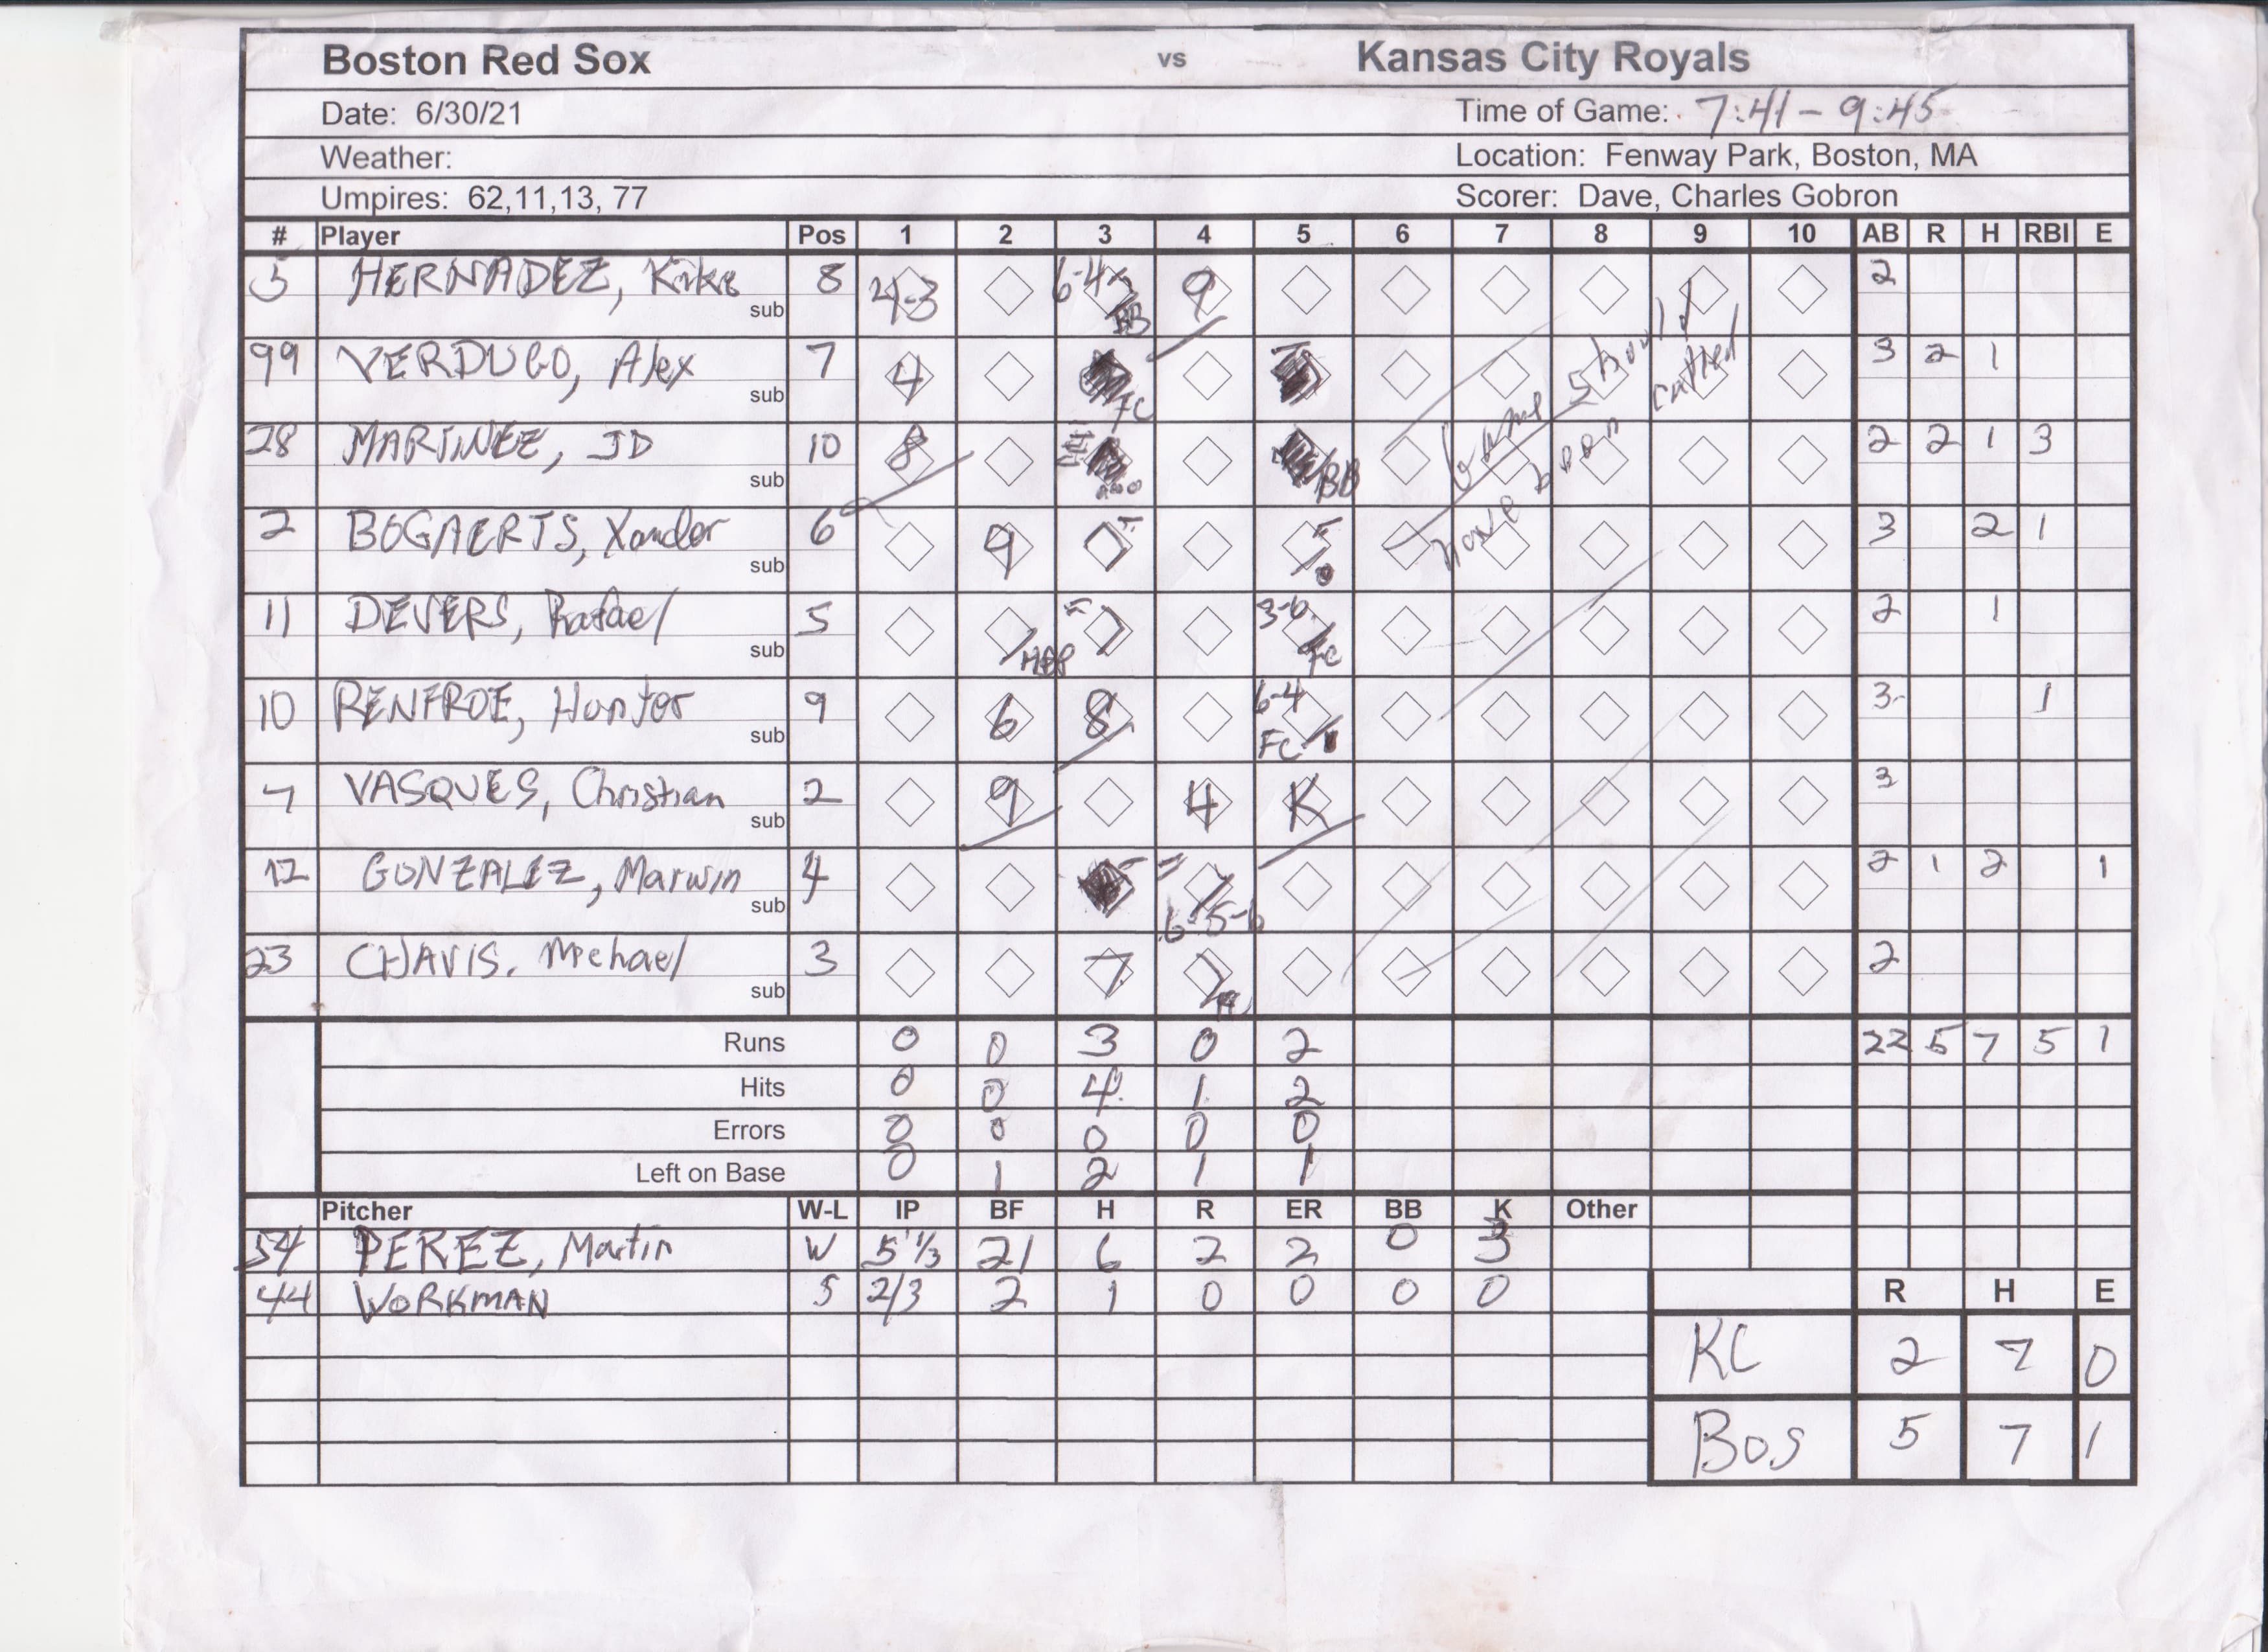 Boston Red Sox vs Kansas City Royals
Date: 6/30/21 Time of Game: 7:41 - 9:45
Weather: Location: Fenway Park, Boston, MA
Umpires: 62,11,13, 77 Scorer: Dave, Charles Gobron
# Player Pos 1 2 3 4 5 6 7 8 9 10 AB R H RBI E
5 HERNADEZ, Kike 8 4-3 6-4 BB 9 2
sub
99 VERDUGO, Alex 7 4 FC 3 2 1
sub
28 MARTINEZ, JD 10 8 BB 2 2 1 3
sub
Game should
have been called
2 BOGAERTS, Xander 6 9 3 2 1
sub
11 DEVERS, Rafael 5 HBP 3-6 FC 2 1
sub
10 RENFROE, Hunter 9 6 8 6-4 FC 3 1
sub
7 VASQUES, Christian 2 9 4 K 3
sub
12 GONZALEZ, Marwin 4 6-5-6 2 1 2 1
sub
23 CHAVIS, Michael 3 7 2
sub
Runs 0 0 3 0 2 22 5 7 5 1
Hits 0 0 4 1 2
Errors 0 0 0 0 0
Left on Base 0 1 2 1 1
Pitcher W-L IP BF H R ER BB K Other
54 PEREZ, Martin W 5 1/3 21 6 2 2 0 3
44 WORKMAN S 2/3 2 1 0 0 0 0
R H E
KC 2 7 0
BOS 5 7 1